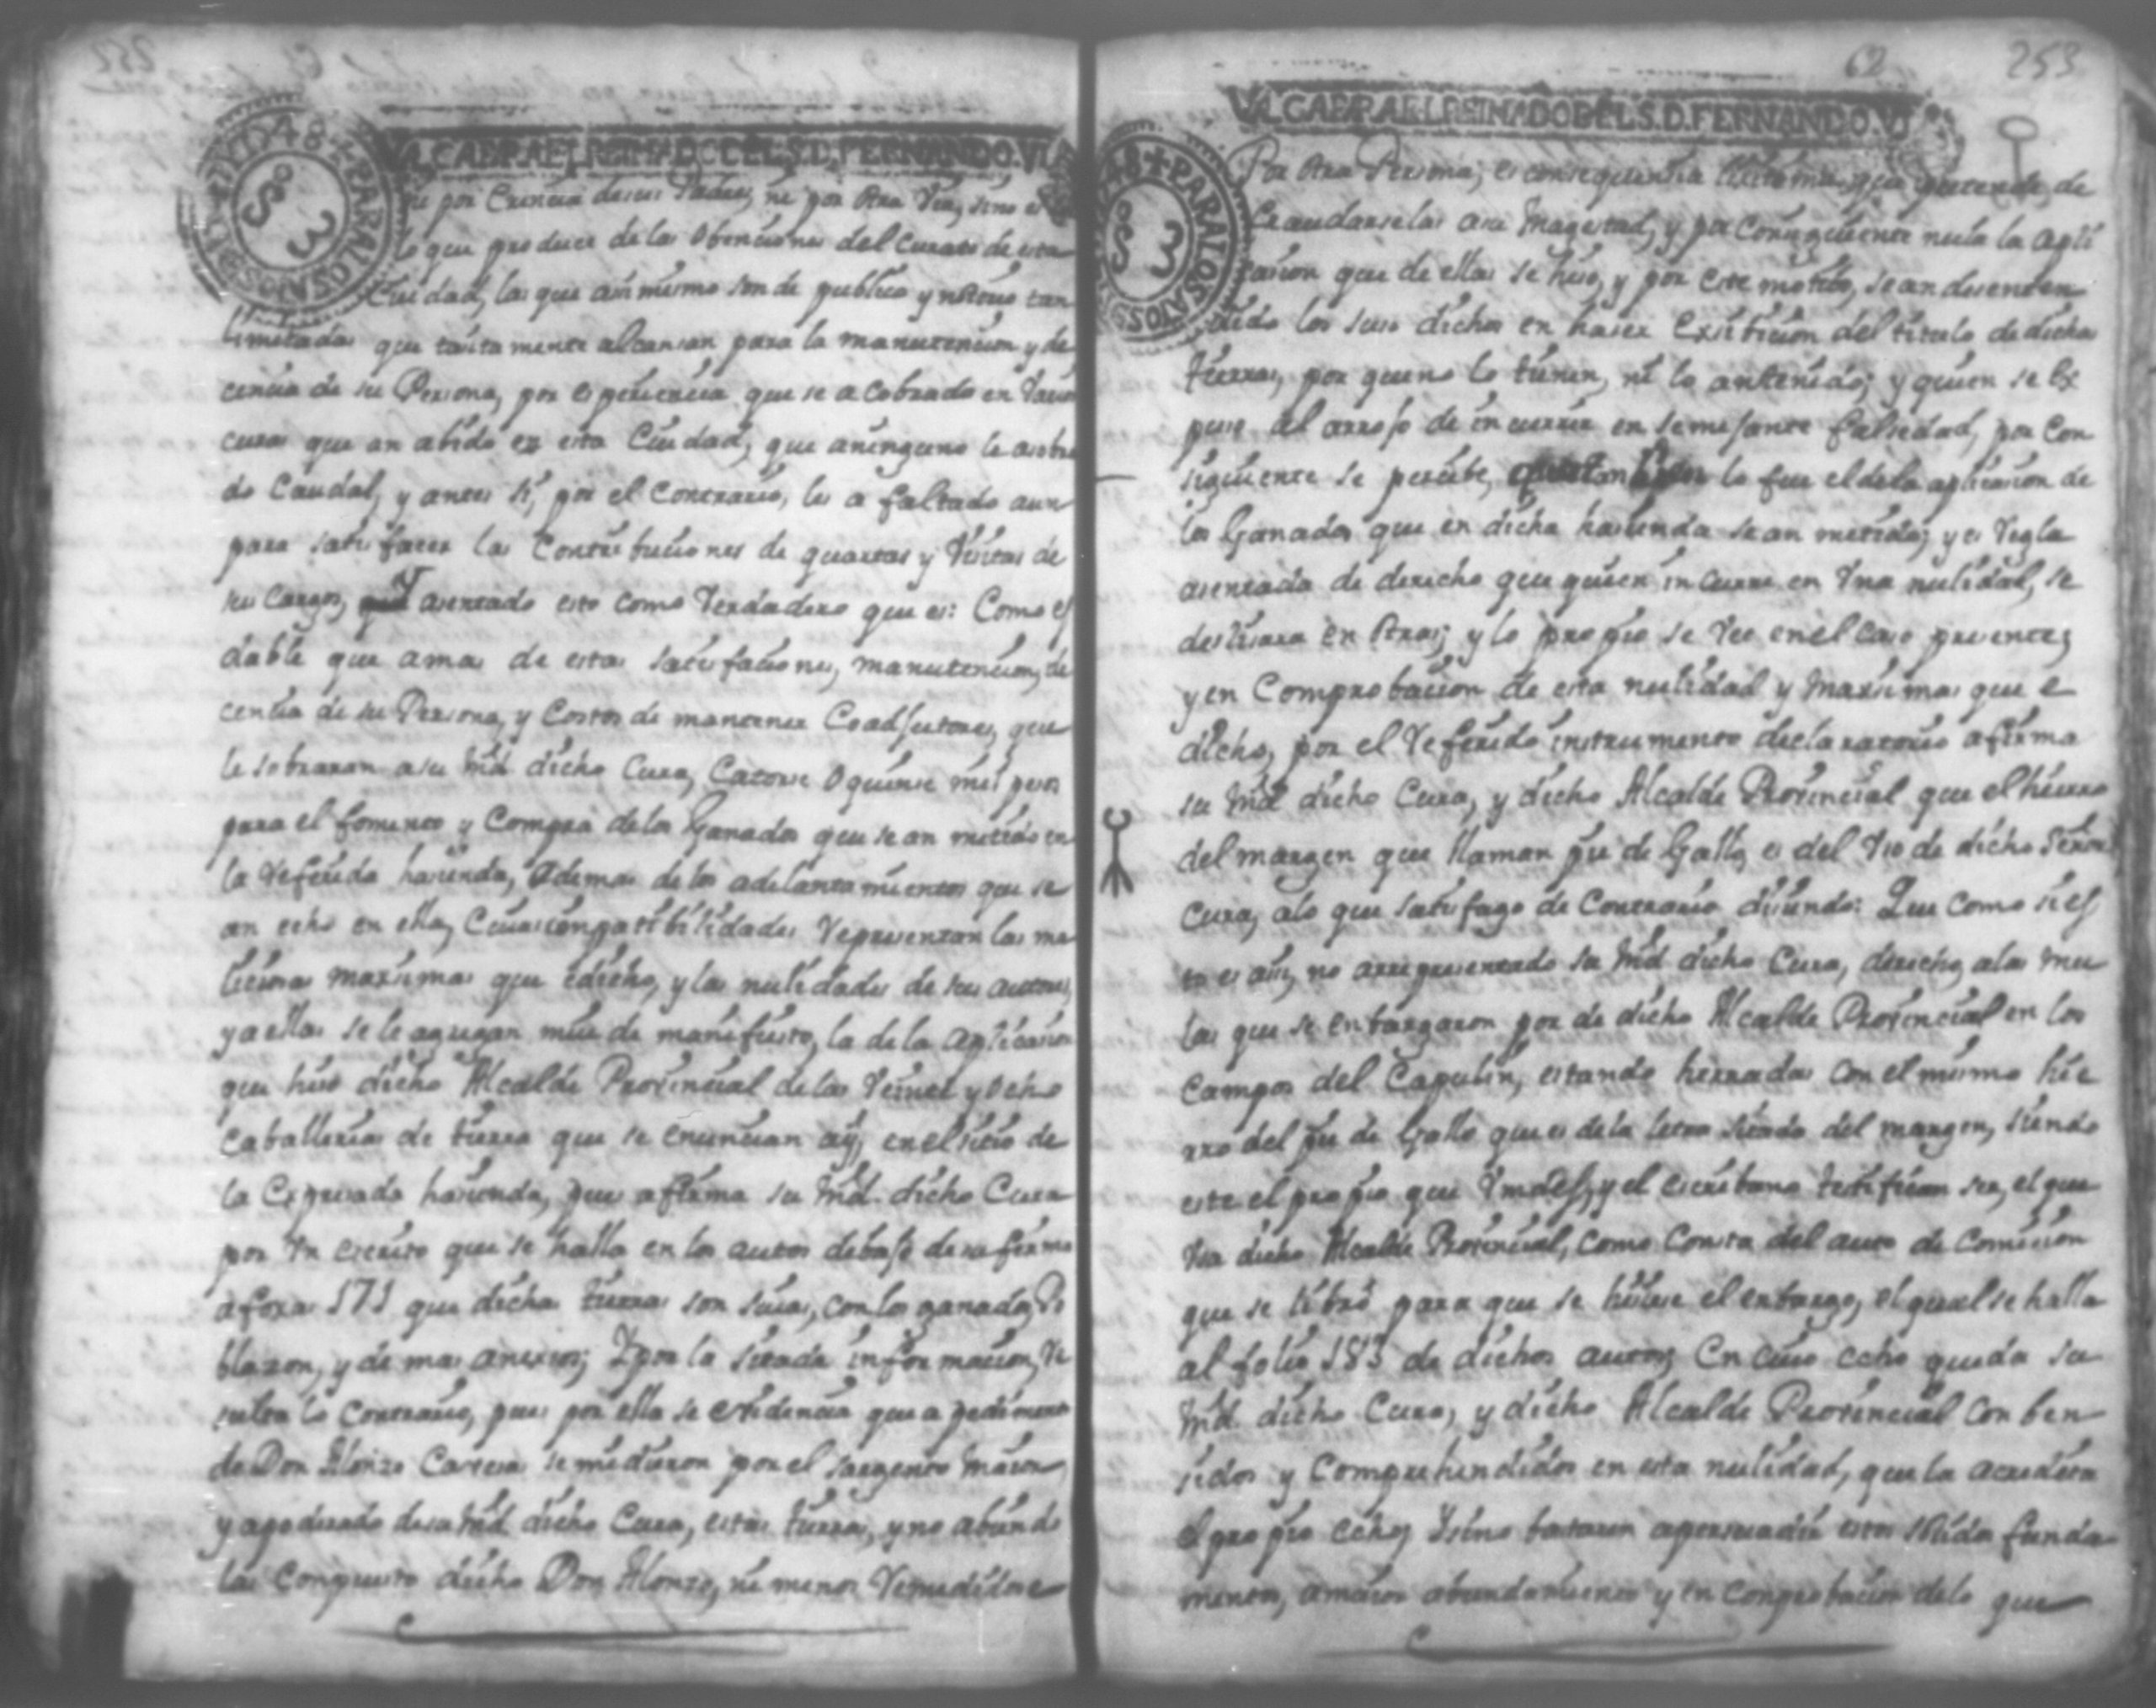 VALGA PARA EL REINADO DEL S. D. FERNANDO. VI
por erencia de sus Padres, ni por otra via, sino es
lo que produce de las obenciones del Curato de esta
Ciudad, las que asimismo son de publico y notorio tan
limitadas que tasitamente alcansan para la manutencion y de
cencia de su Persona, por esperiencia que se a cobrado en varios
curas que an abido en esta Ciudad, que aninguno le a sobra
do Caudal, y antes si, por el Contrario, les a faltado aun
para satisfacer las Contribuciones de quartas y Visitas de
sus Cargos, y asentado esto como Verdadero que es: Como es
dable que amas de estas satisfaciones, manutencion, de
cencia de su Persona, y Costos de mantener Coadjutores, que
le sobraran a su Md dicho Cura, Catorse o quinse mil pesos
para el fomento y Compra de los Ganados que se an metido en
la referida hasienda, Ademas de los adelantamientos que se
an echo en ella, Cuias conpatibilidades representan las ma
liciosas maximas que e dicho, y las nulidades de sus autores,
y a ellas se le agregan mui de manifiesto, la de la aplicasion
que hiso dicho Alcalde Provincial de las Veinte y ocho
caballerias de tierra que se enuncian ay, en el sitio de
la Expresada hasienda, pues afirma su Md. dicho Cura
por un escrito que se halla en los autos debajo de su firma
a foxas 171 que dichas tierras son suias, con los ganados, Po
blazon, y demas anexos; Y por la sitada informacion, re
sulta lo Contrario, pues por ella se evidencia que a pedimento
de Don Alonzo Carcia se midieron por el sargento maior,
y apoderado de su Md dicho Cura, estas tierras, y no abiendo
las Conpuesto dicho Don Alonzo, ni menos remedidose
62 253
VALGA PARA EL REINADO DEL S. D. FERNANDO. VI
Por otra Persona; es consequencia lexitima, que pretende de
fraudarselas a su Magestad, y por Consiguiente nula la apli
casion que de ellas se hiso, y por este motibo, se an desenten
dido los suso dichos en haser Exsibicion del titulo de dichas
tierras, por que no lo tienen, ni lo an tenido; y quien se Ex
puso al arrojo de incurrir en semejante falsedad, por Con
siguiente se percibe, lo fue el de la aplicasion de
los Ganados que en dicha hasienda se an metido; y es regla
asentada de derecho que quien incurre en Una nulidad, se
deslisara en otras; y lo propio se ve en el caso presente;
y en Comprobacion de esta nulidad y maximas que e
dicho, por el referido instrumento declaratorio afirma
su Md dicho Cura, y dicho Alcalde Provincial que el hierro
del margen que llaman pie de Gallo, es del uso de dicho Señor
Cura, a lo que satisfago de Contrario disiendo: Que como si es
to es asi, no a representado su Md dicho Cura, derecho, a las mu
las que se enbargaron por de dicho Alcalde Provincial en los
Campos del Capulin, estando herradas con el mismo hie
rro del pie de Gallo que es de la letra sitado del margen, siendo
este el propio que Vmdes, y el escribano testifican ser, el que
usa dicho Alcalde Provincial, como Consta del auto de Comision
que se libró para que se hisiese el enbargo, el qual se halla
al folio 183 de dichos autos; en cuio echo queda su
Md. dicho Cura, y dicho Alcalde Provincial Conben
sidos y Comprehendidos en esta nulidad, que la acredita
el propio echo; Y sino bastaren a persuadir estos solidos funda
mentos, a maior abundamiento y en Conprobacion de lo que